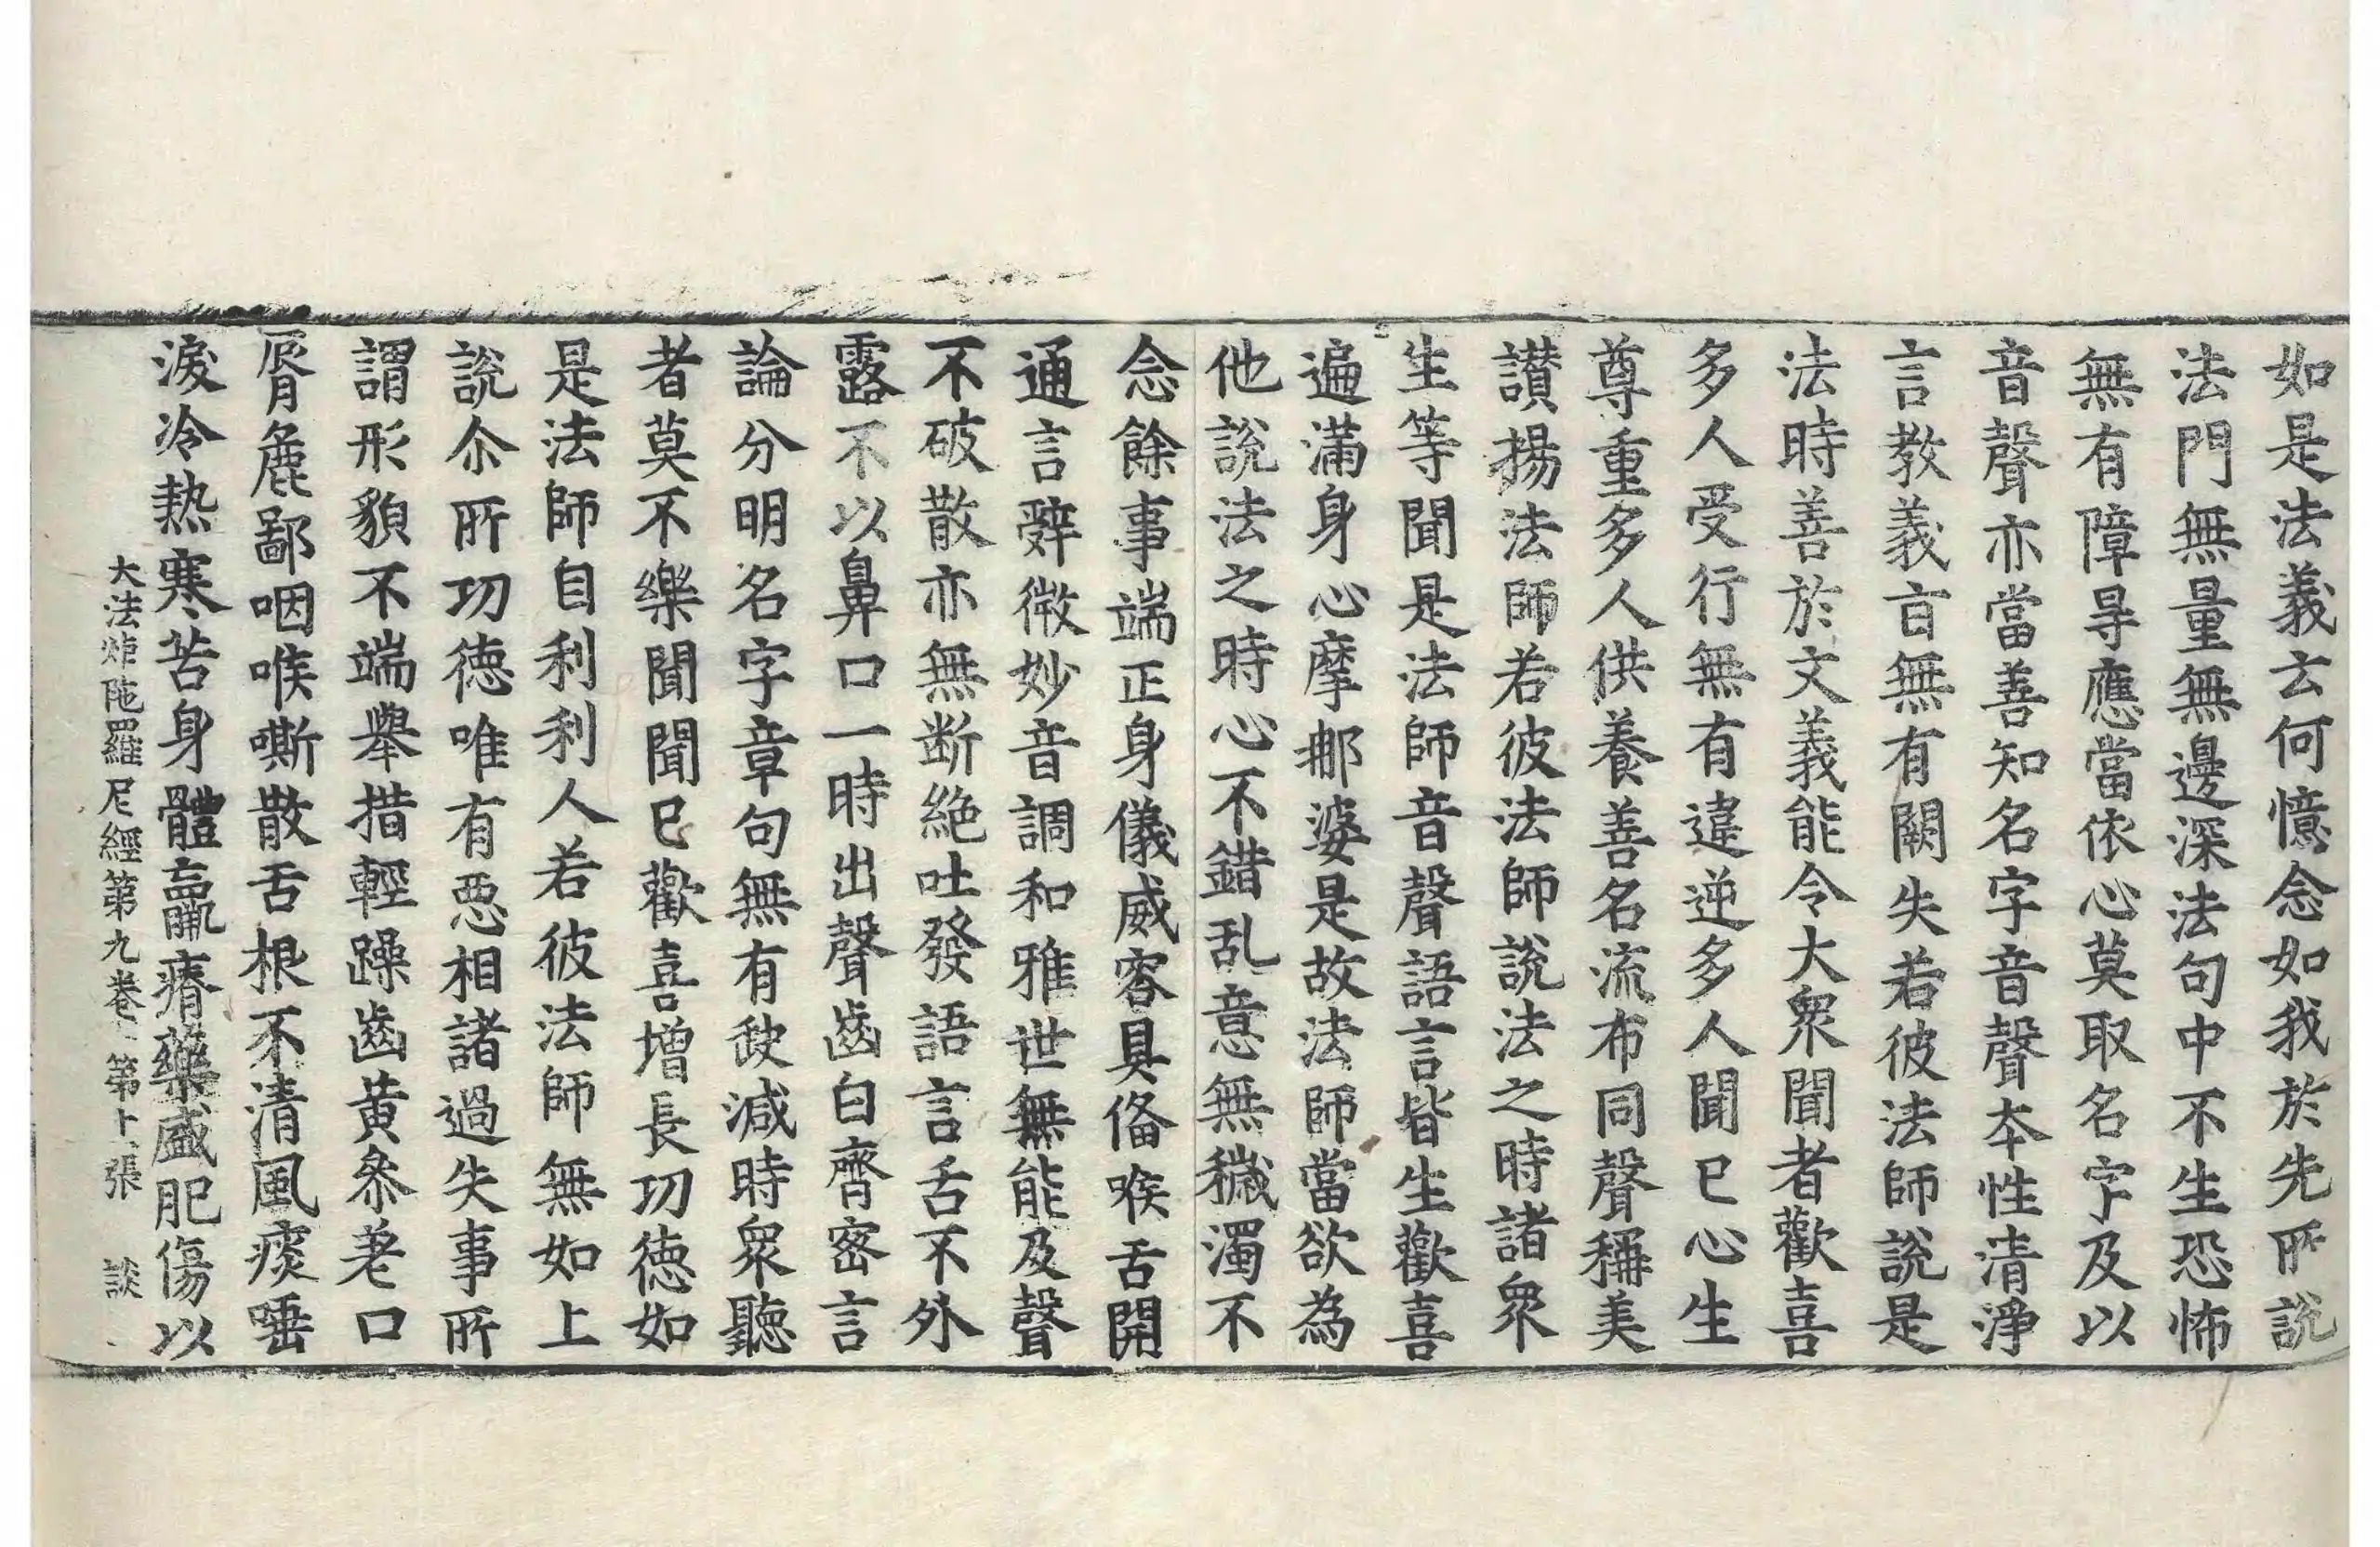 如是法義云何憶念如我於先所説
法門無量無邊深法句中不生恐怖
無有障㝵應當依心莫取名字及以
音聲亦當善知名字音聲本性清淨
言教義言無有闕失若彼法師説是
法時善於文義能令大衆聞者歡喜
多人受行無有違逆多人聞已心生
尊重多人供養善名流布同聲稱美
讃揚法師若彼法師説法之時諸衆
生等聞是法師音聲語言皆生歡喜
遍滿身心摩那婆是故法師當欲為
他説法之時心不錯乱意無穢濁不
念餘事端正身儀威容具俻喉舌開
通言辝微妙音調和雅世無能及聲
不破散亦無断絶吐發語言舌不外
露不以鼻口一時出聲齒白齊密言
論分明名字章句無有缺減時衆聽
者莫不樂聞聞已歡喜增長功德如
是法師自利利人若彼法師無如上
説尒所功德唯有惡相諸過失事所
謂形貌不端舉措輕躁齒黃黍老口
脣麁鄙咽喉嘶散舌根不清風痰唾
淚冷熱寒苦身體羸瘠藥盛肥傷以
大法炬陁羅尼經第九卷 第十張 談